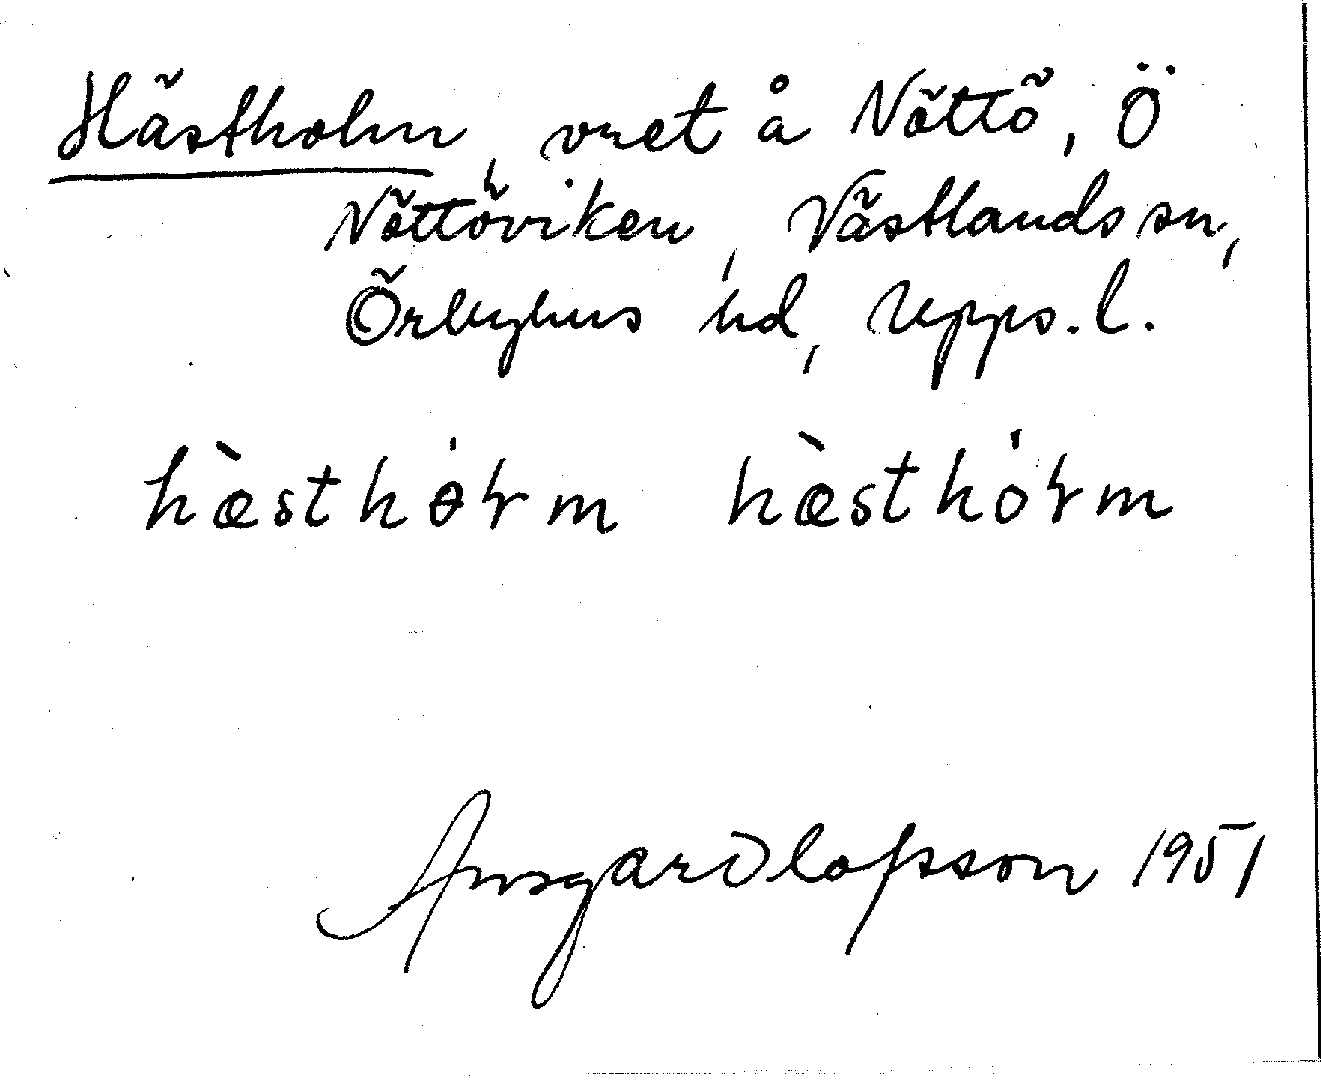 Hästholm, vret å Nöttö, Ö
Nöttöviken, Västlands sn,
Örbyhus hd, Upps. l.
hæ̀sthɵ̇łm hæ̀sthȯłm
Ansgar Olofsson 1951